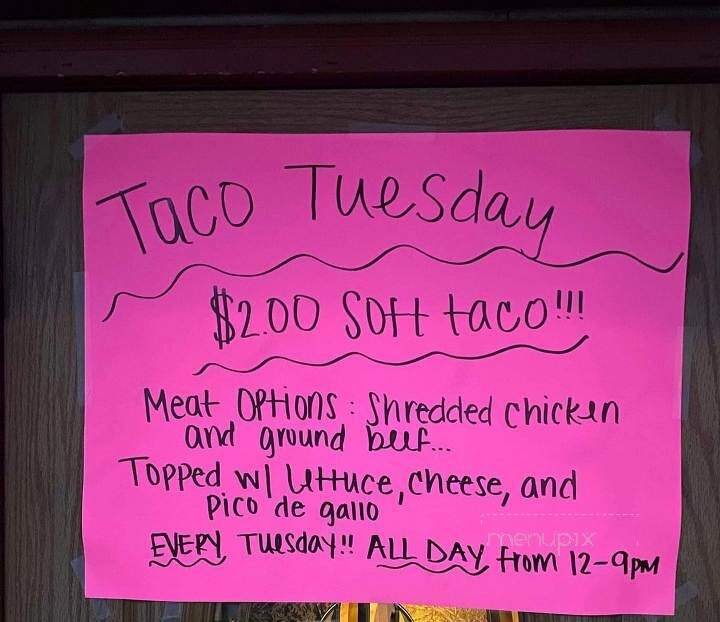 Taco Tuesday
$2.00 Soft taco!!!
Meat Options: Shredded chicken
and ground beef...
Topped w/ lettuce, cheese, and
pico de gallo
menupix
EVERY Tuesday!! ALL DAY from 12-9pm